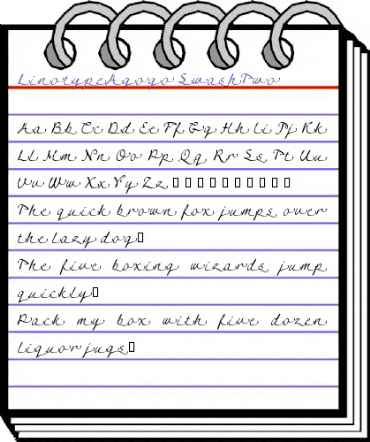 LinotypeAgogo SwashTwo
Aa Bb Cc Dd Ee Ff Gg Hh Ii Jj Kk
Ll Mm Nn Oo Pp Qq Rr Ss Tt Uu
Vv Ww Xx Yy Zz □□□□□□□□□□
The quick brown fox jumps over
the lazy dog□
The five boxing wizards jump
quickly□
Pack my box with five dozen
liquor jugs□